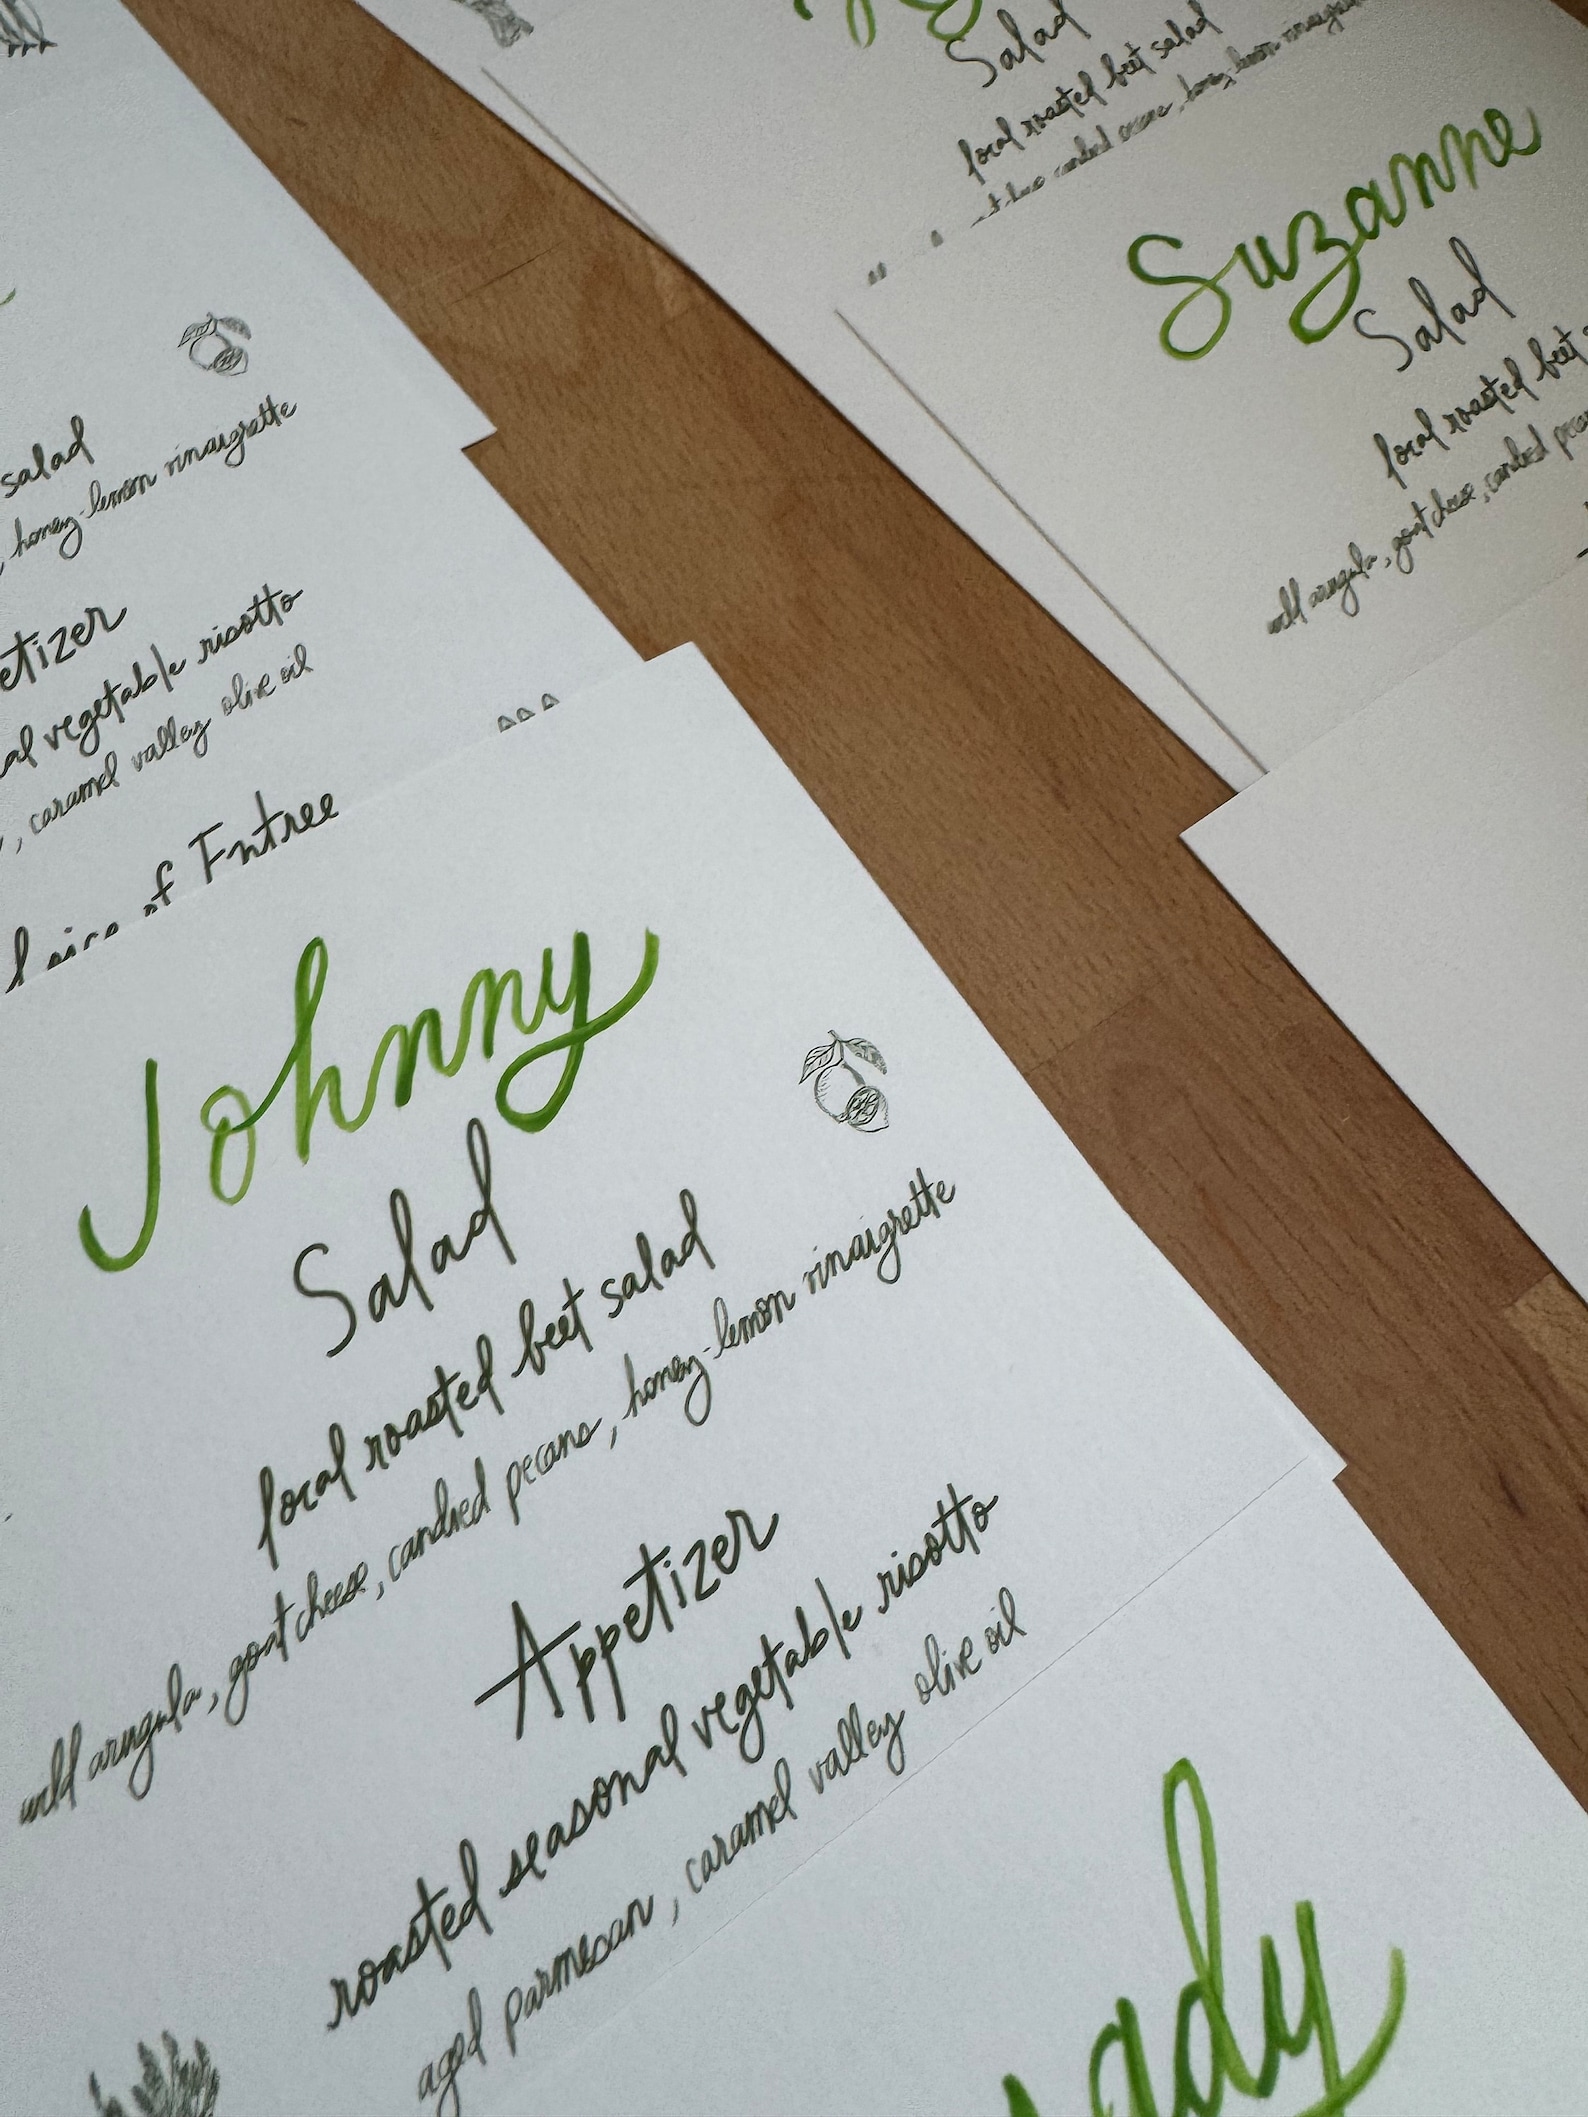 Salad
local roasted beet salad
candied
Suzanne
Salad
local roasted beet
wild arugula, goat cheese, candied
salad
honey-lemon vinaigrette
vegetable risotto
, caramel valley olive oil
of Entree
Johnny
Salad
local roasted beet salad
wild arugula, goat cheese, candied pecans, honey-lemon vinaigrette
Appetizer
roasted seasonal vegetable risotto
aged parmesan, caramel valley olive oil
ady